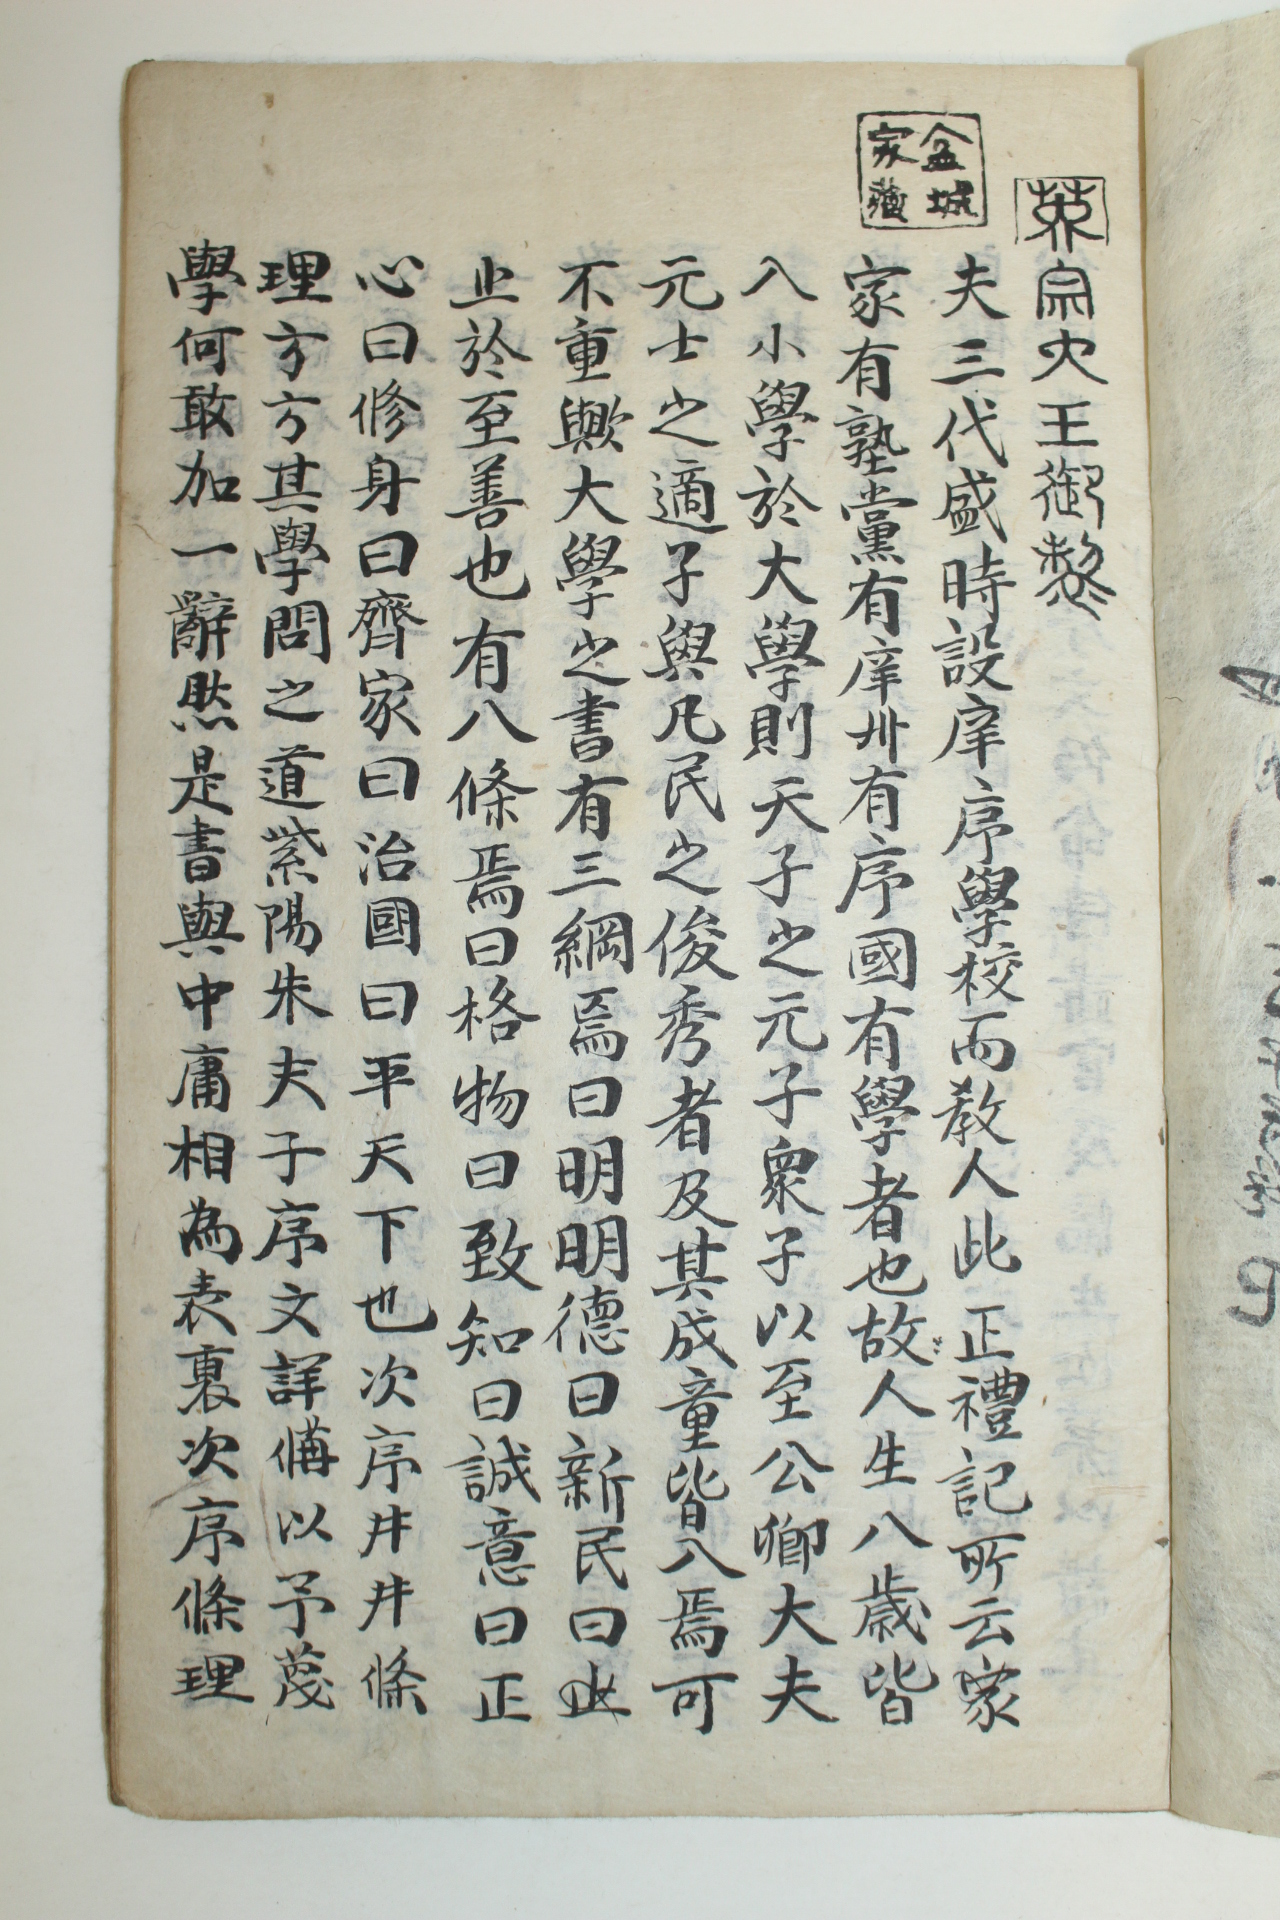 英宗大王御製
金城家藏
夫三代盛時設庠序學校而教人此正禮記所云家
家有塾黨有庠州有序國有學者也故人生八歲皆
入小學於大學則天子之元子衆子以至公卿大夫
元士之適子與凡民之俊秀者及其成童皆入焉可
不重歟大學之書有三綱焉曰明明德曰新民曰止
止於至善也有八條焉曰格物曰致知曰誠意曰正
心曰修身曰齊家曰治國曰平天下也次序井井條
理方方其學問之道紫陽朱夫子序文詳備以予蔑
學何敢加一辭然是書與中庸相為表裏次序條理